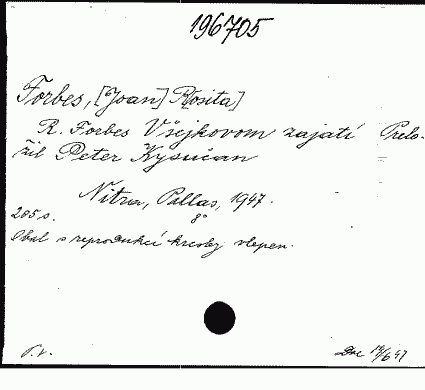 196705
Forbes, [Joan] R[osita]
R. Forbes Všejkovom zajatí Prelo-
žil Peter Kysučan
Nitra, Pallas, 1947.
205 s. 8°
Obal s reprodukcí kresby vlepen.
P.v. Dne 19/6 47